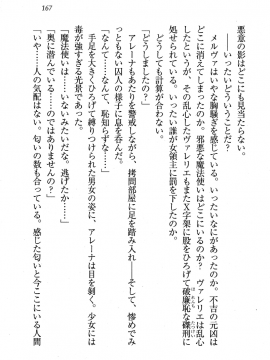 167
悪意の影はどこにも見当たらない。
「いったいどういうことだ？」
メルヴァはいやな胸騒ぎを感じている。いったいなにがあったのか。不吉の元凶は
どこに消えてしまったのか。邪悪な魔法使いはどこに。しかもヴァレリエは乱心
している。その乱心したヴァレリエをいったい誰が女領主に罰を下したのか。
どうしても計算が合わない。
「どうしましたの？」
アレーナもあたりを警戒しながら、拷問部屋に足を踏み入れ――そして、惨めでみ
っともない囚人の様子に息を呑んだ。
「なんて……なんて、恥知らずな……」
手足を大きくひろげて縛りつけられた男女の姿に、アレーナは目を剝く。少女には
毒が強すぎる光景であった。
「魔法使いがいませんね。逃げたか……」
「奥に潜んでいる……のではありませんの？」
「いや……人の気配はない。匂いの数も合っている。感じた匂いと今ここにいる人間